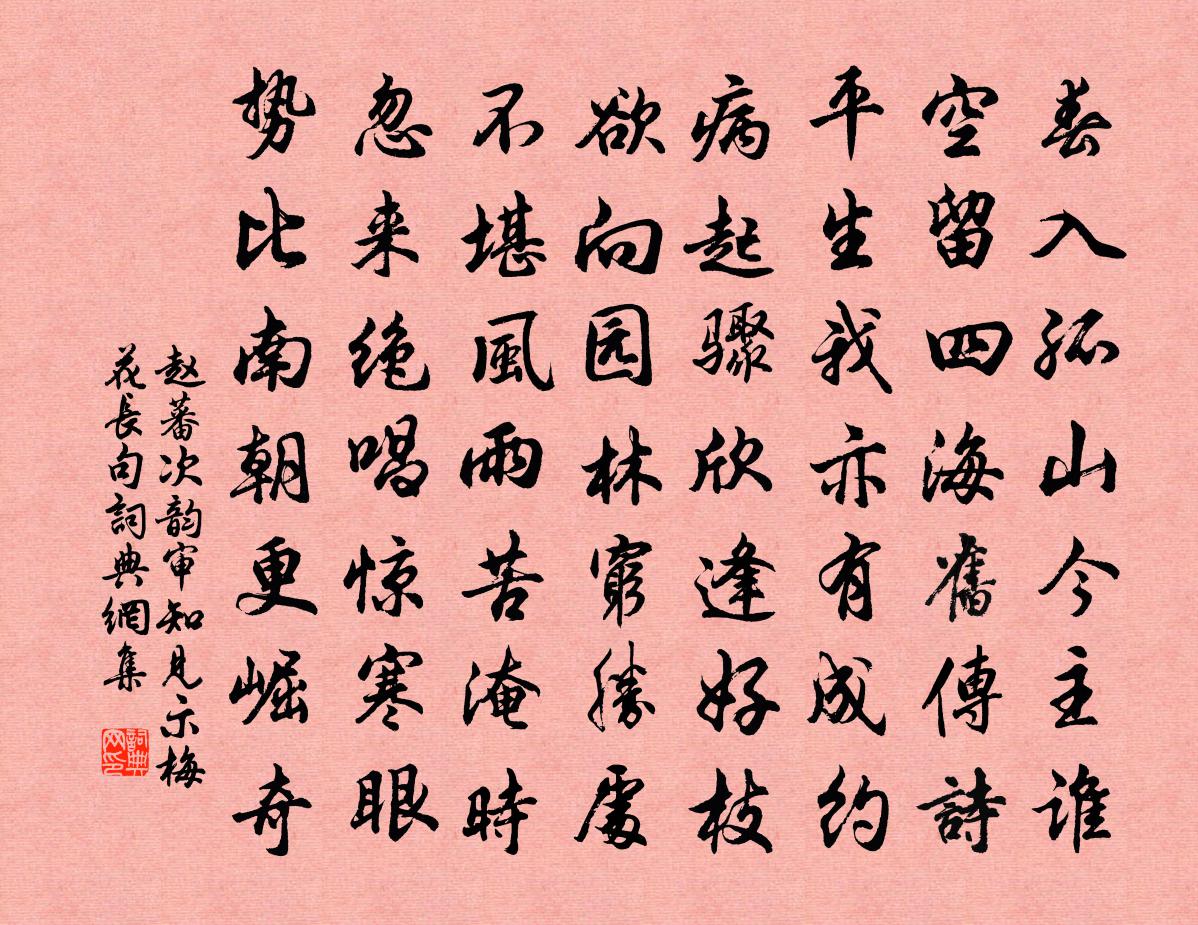 春入孤山今主谁
空留四海舊傳詩
平生我亦有成约
病起骤欣逢好枝
欲向园林窮勝處
不堪風雨苦淹時
忽来绝唱惊寒眼
势比南朝更崛奇
赵蕃次韵审知见示梅
花長句詞典網集
詞典
网印